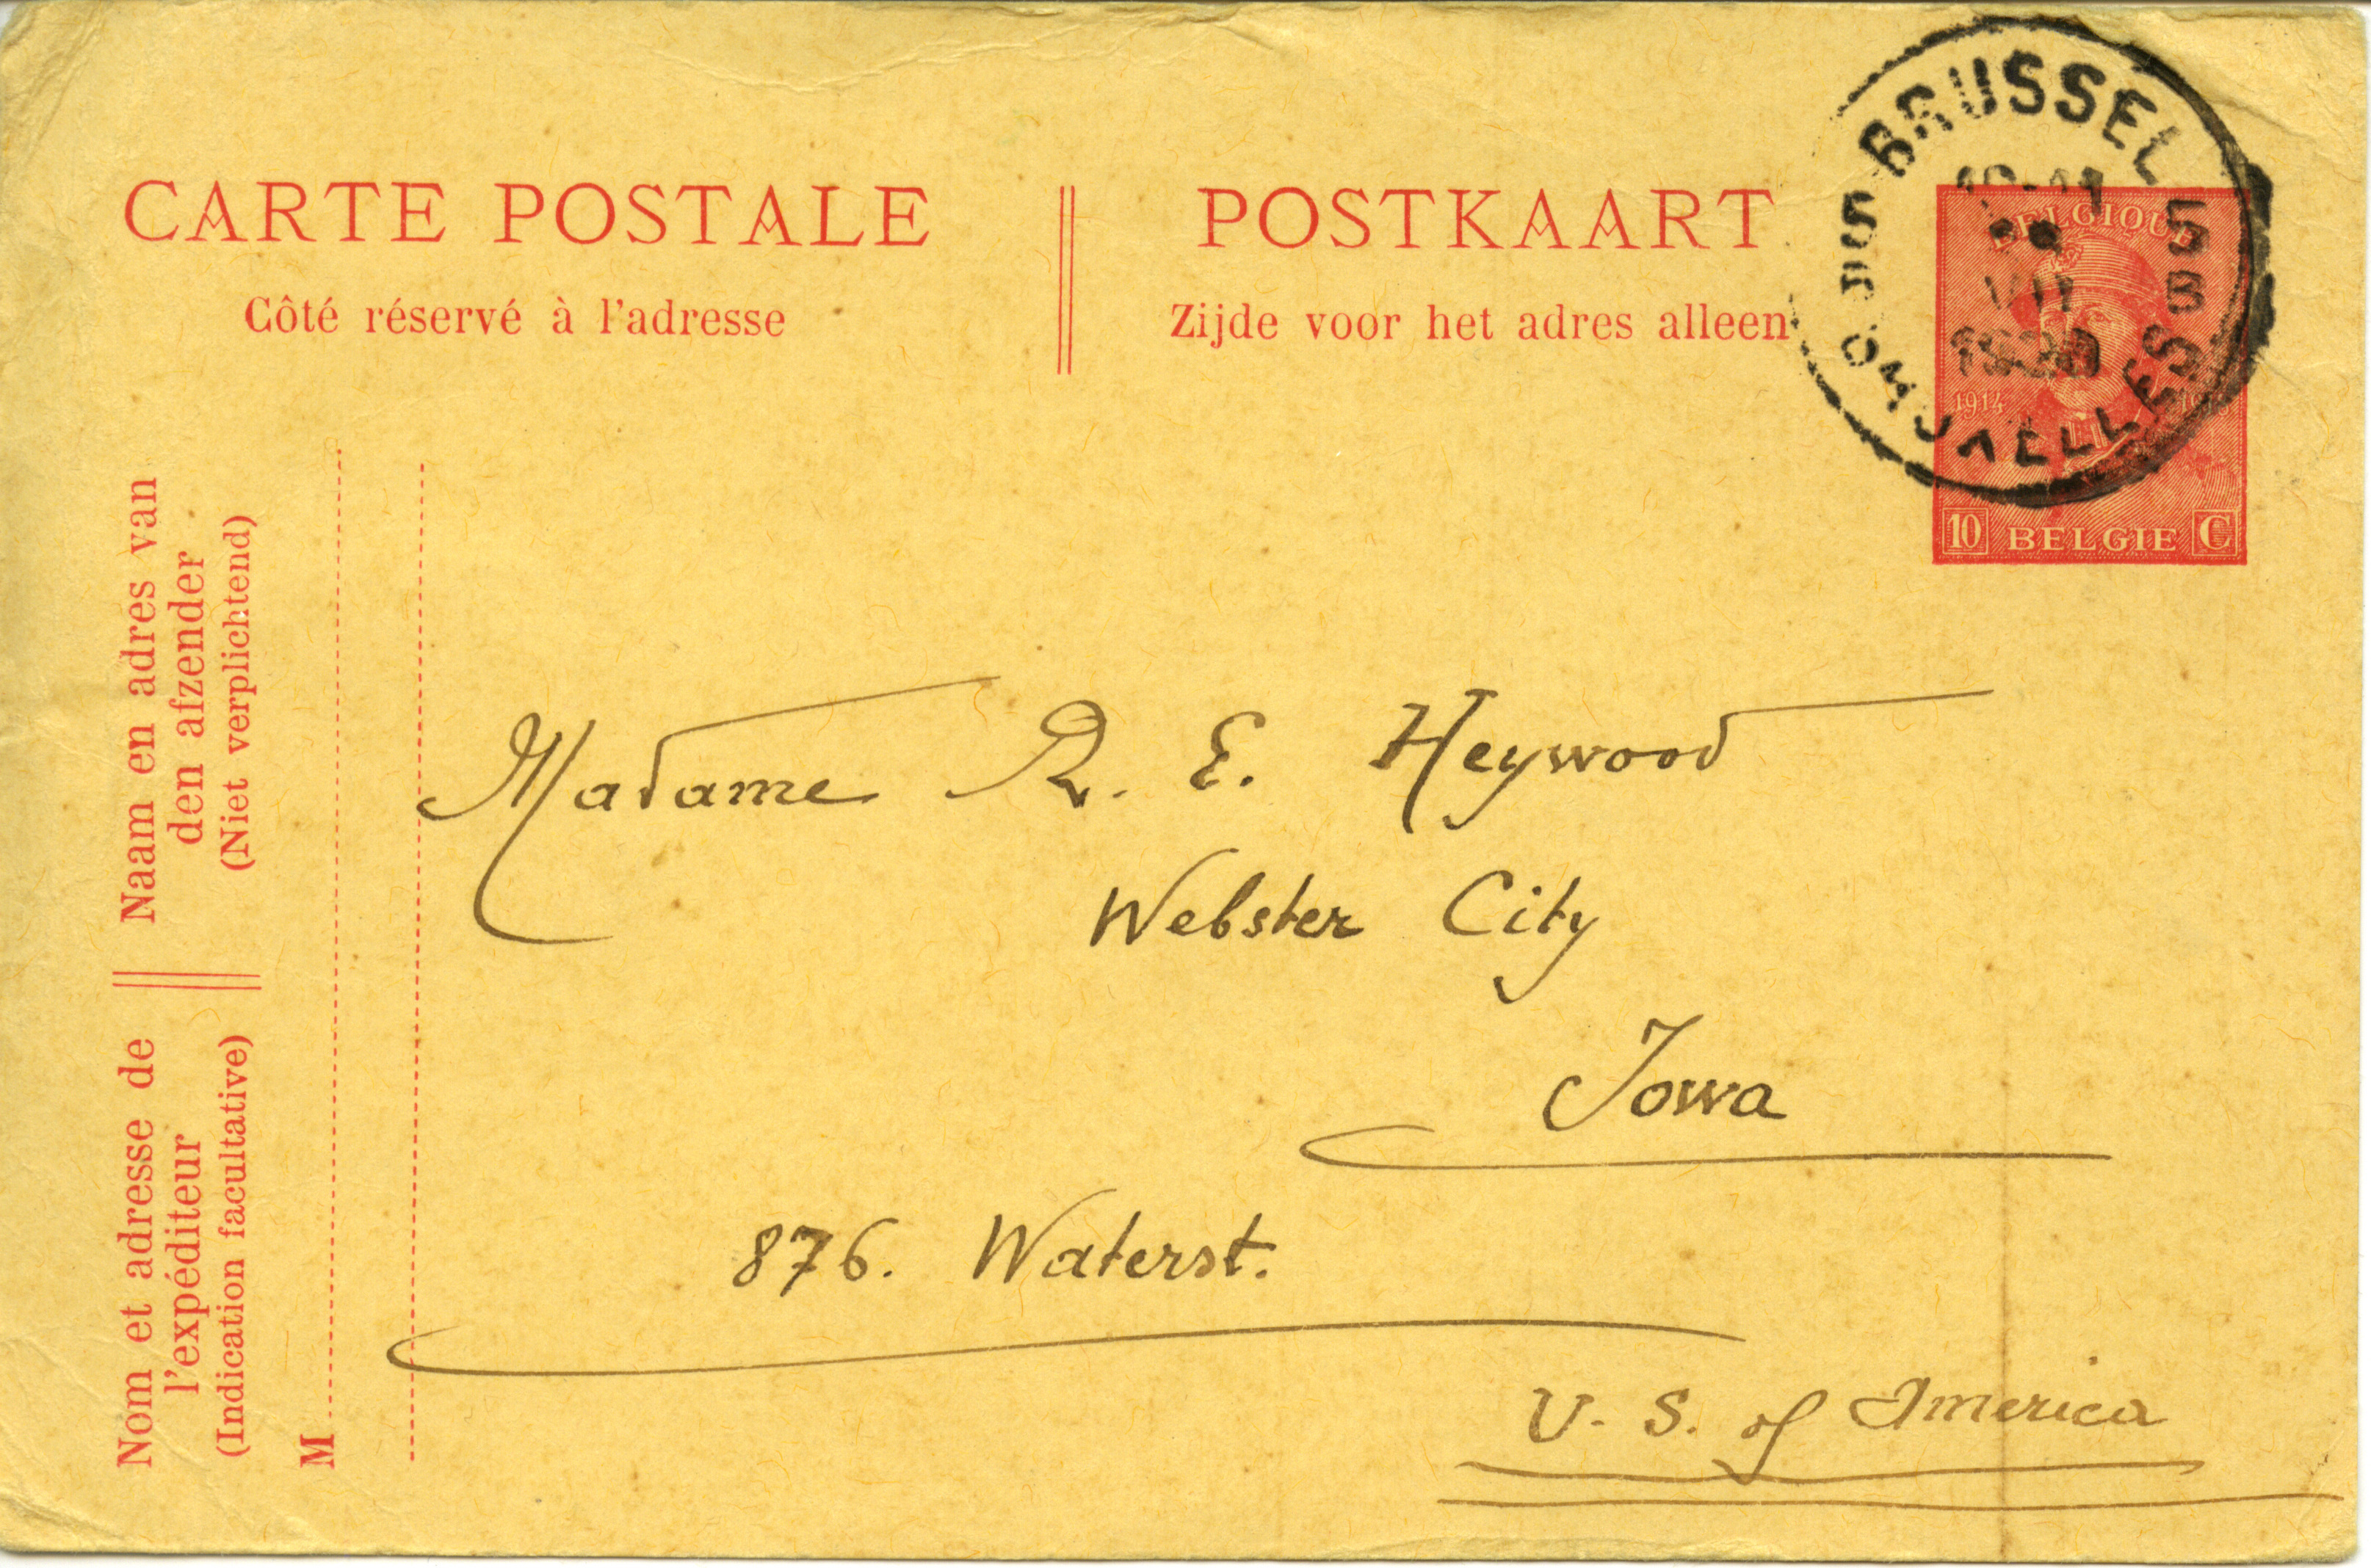 CARTE POSTALE
Côté réservé à l'adresse
POSTKAART
Zijde voor het adres alleen
BRUSSEL
5B
1920
BELGIQUE
1914
10 BELGIE C
Naam en adres van
den afzender
(Niet verplichtend)
Nom et adresse de
l'expéditeur
(Indication facultative)
M
Madame R. E. Heywood
Webster City
Iowa
876. Waterst.
U. S. of America